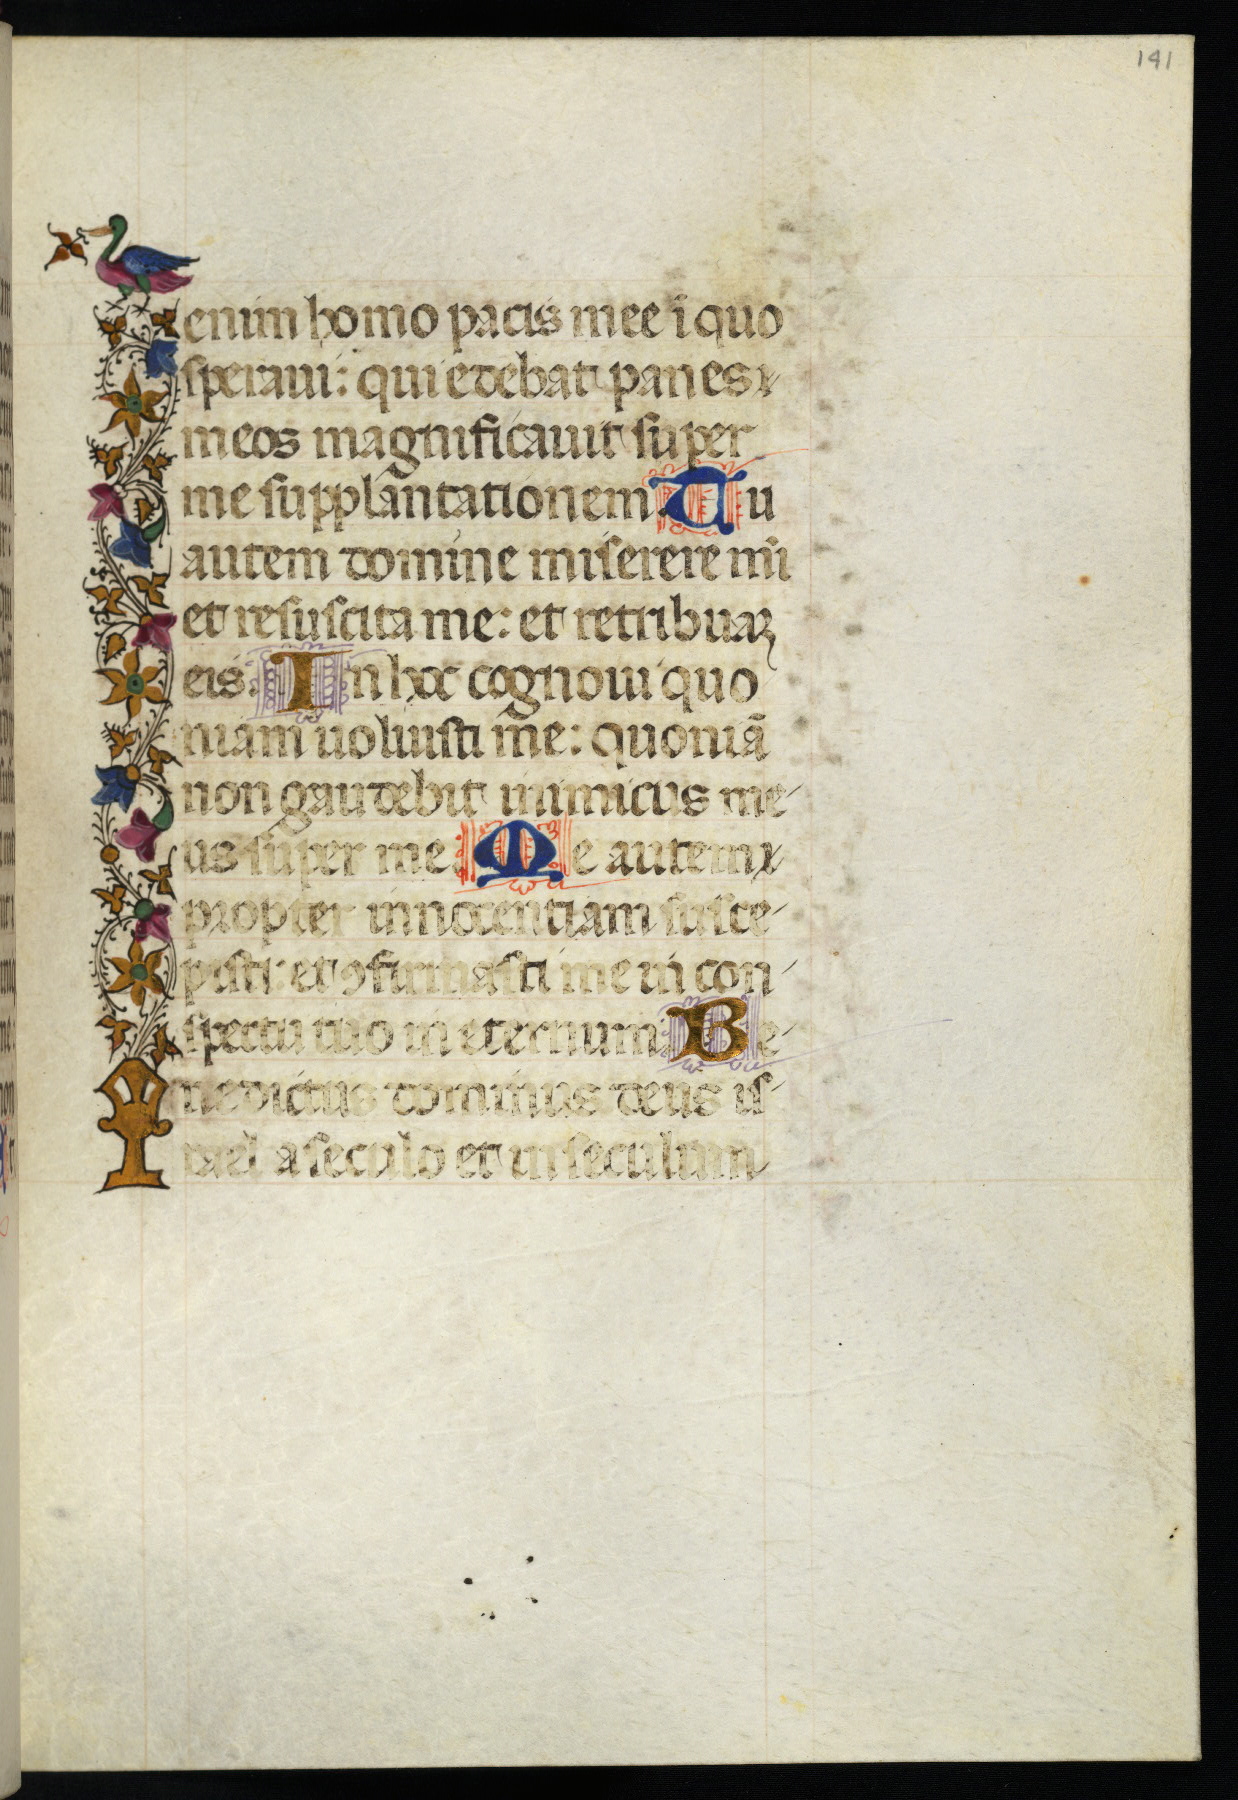 141
enim homo pacis mee ī quo
speraui: qui edebat panes
meos magnificauit super
me supplantationem. Tu
autem domine miserere mī
et resuscita me: et retribuaꝫ
eis. In hoc cognoui quo
niam uoluisti me: quoniā
non gaudebit inimicus me
us super me. Me autem
propter innocentiam susce
pisti: et ꝯfirmasti me in con
spectu tuo in eternum. Be
nedictus dominus deus is
rael a seculo et in seculum